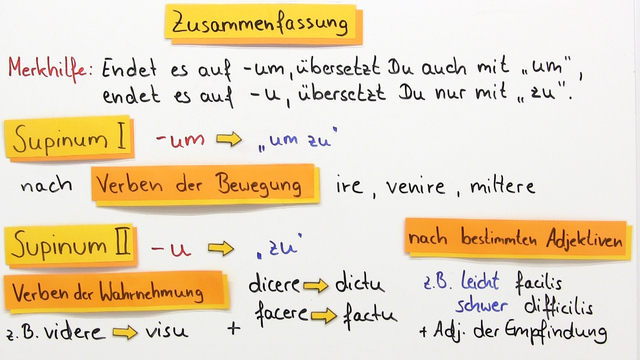 Zusammenfassung
Merkhilfe: Endet es auf -um, übersetzt Du auch mit „um“,
endet es auf -u, übersetzt Du nur mit „zu“.
Supinum I -um → „um zu“
nach Verben der Bewegung ire, venire, mittere
Supinum II -u → „zu“
nach bestimmten Adjektiven
Verben der Wahrnehmung
z.B. videre → visu +
dicere → dictu
facere → factu
z.B. leicht facilis
schwer difficilis
+ Adj. der Empfindung